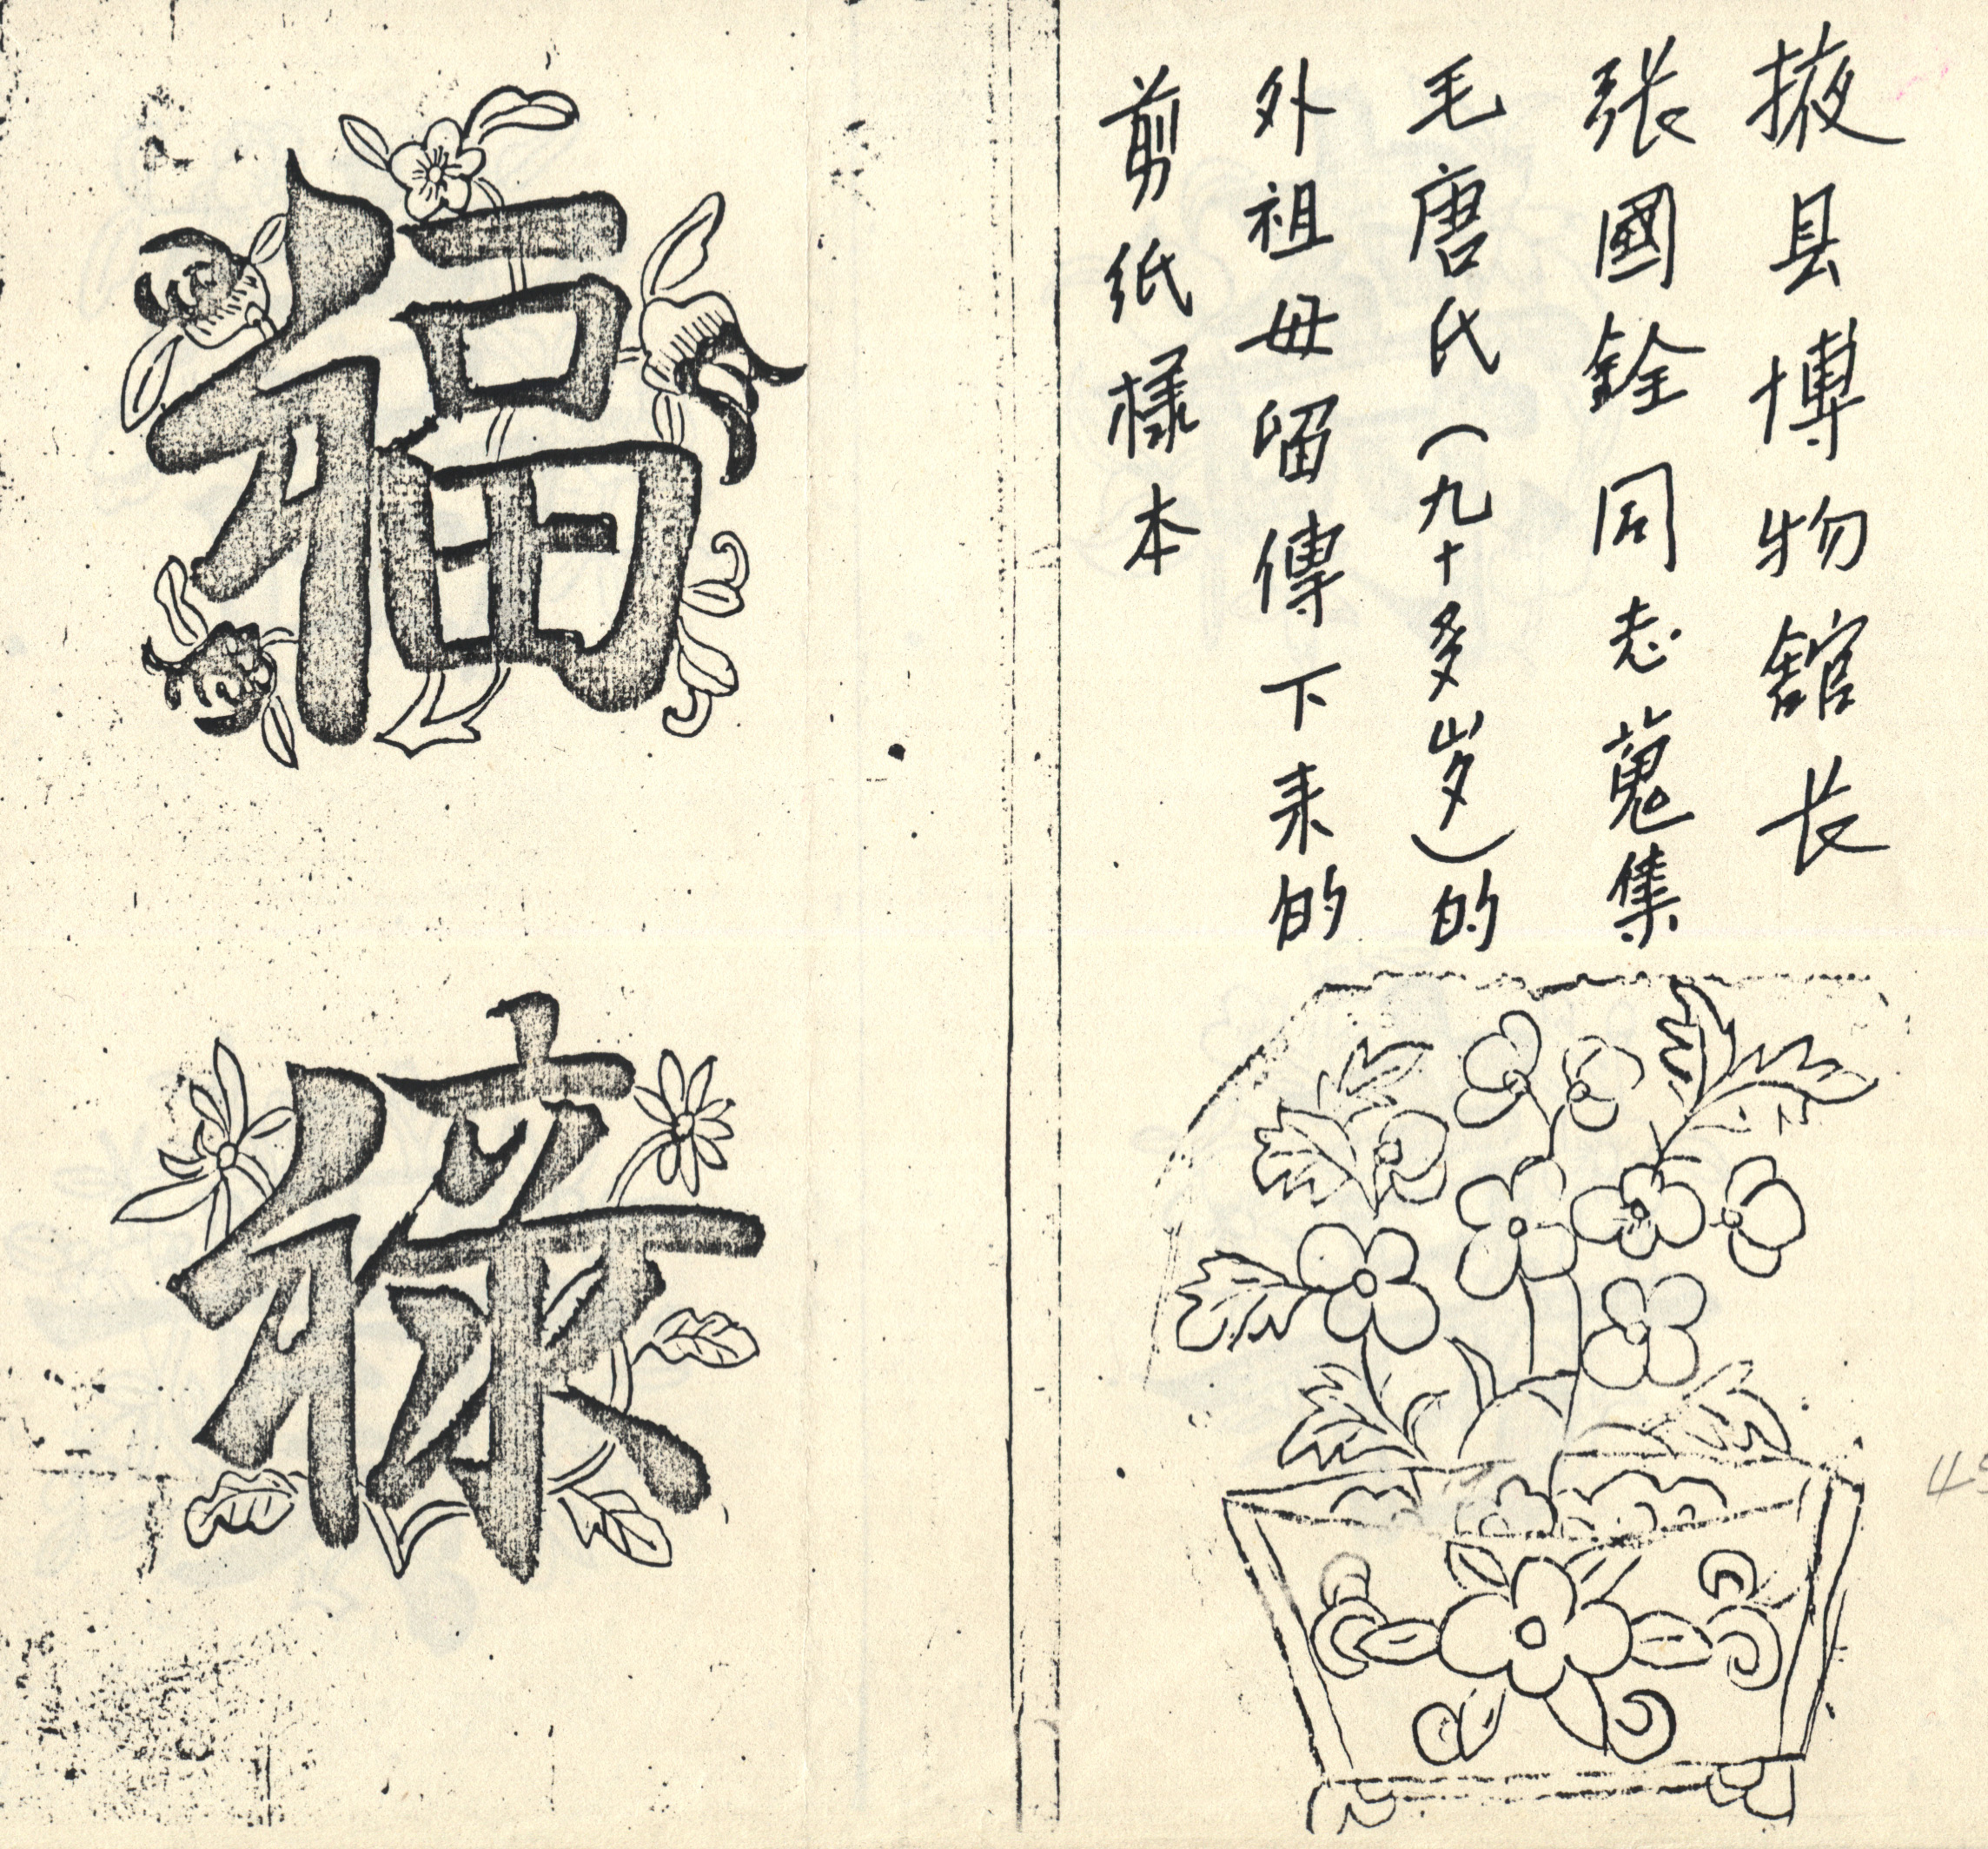 掖县博物舘长
张國銓同志蒐集
毛唐氏(九十多岁)的
外祖母留傳下来的
剪纸樣本
福
祿